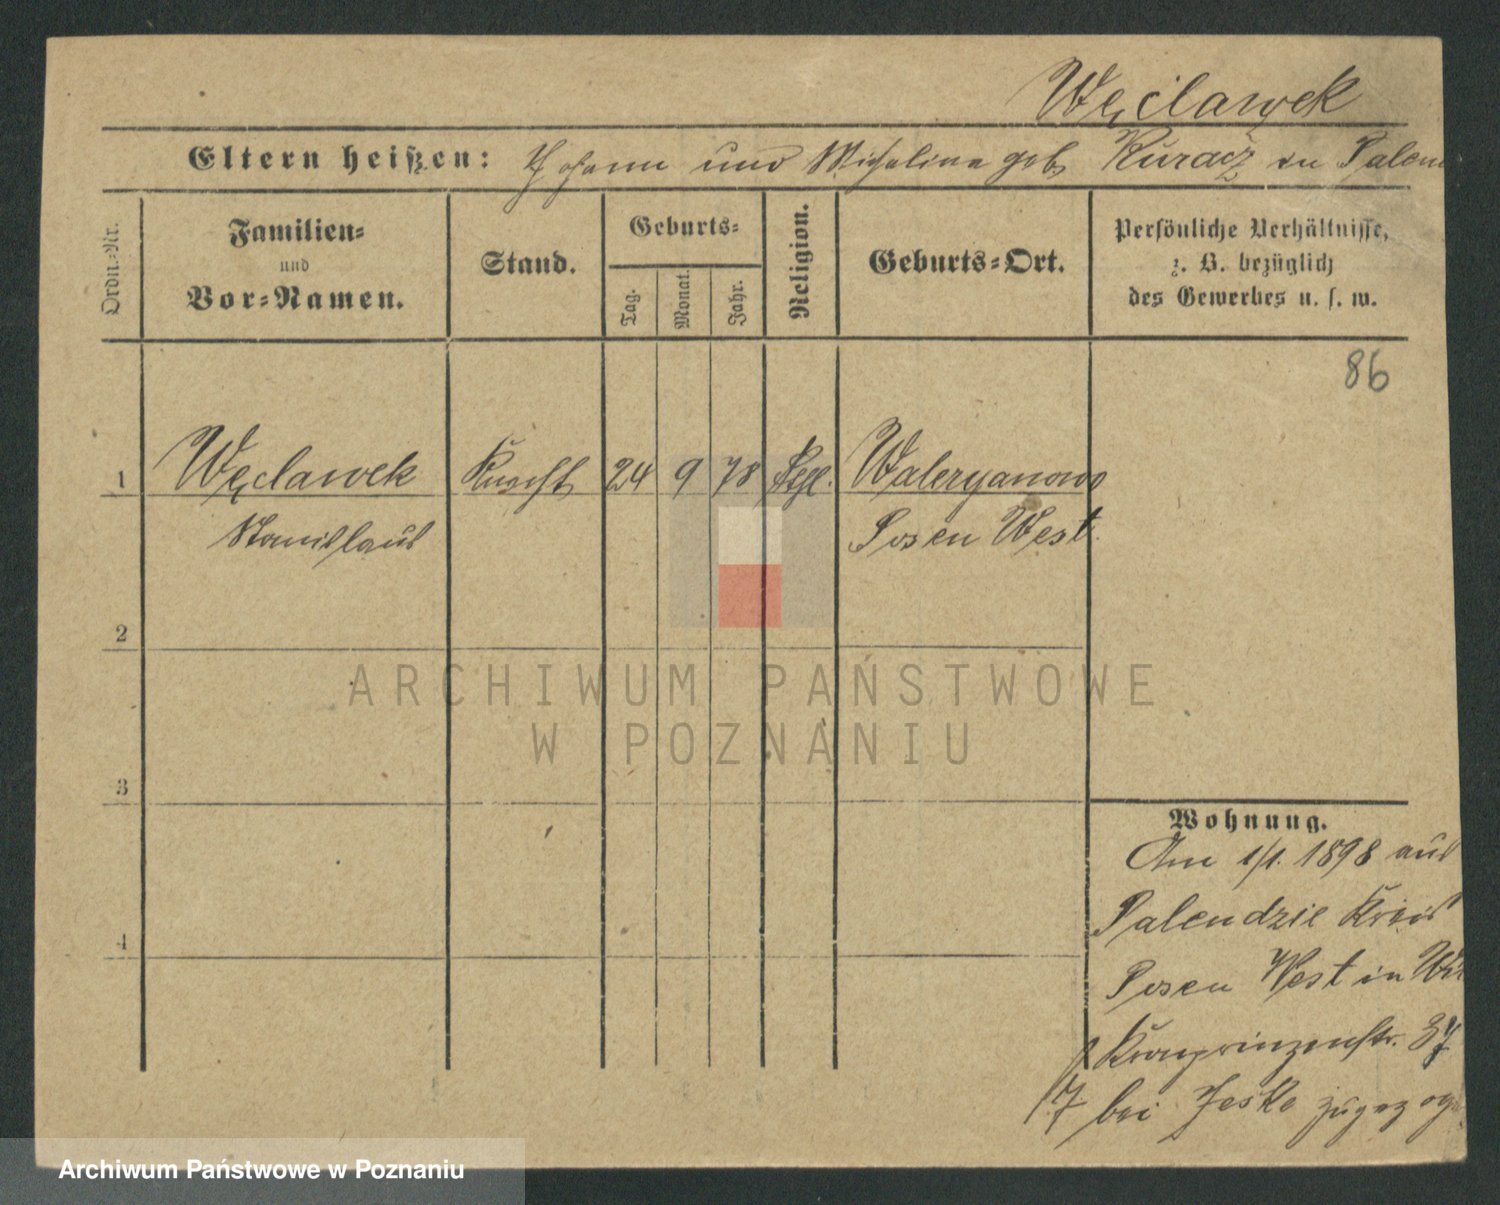 Węclawek
Eltern heißen: Johann und Michalina geb. Kuracz in Palen
Ordn.-Nr.
Familien-
und
Vor-Namen.
Stand.
Geburts-
Tag.
Monat.
Jahr.
Religion.
Geburts-Ort.
Persönliche Verhältnisse,
z. B. bezüglich
des Gewerbes u. s. w.
86
1 Węclawek Knecht 24 9 78 kthl. Waleryanowo
Stanislaus Posen West.
2
3
4
Wohnung.
Am 1/1. 1898 aus
Palendzie Kreis
Posen West in
Kronprinzenstr. 37
bei Jeske zugezog
ARCHIWUM PAŃSTWOWE
W POZNANIU
Archiwum Państwowe w Poznaniu